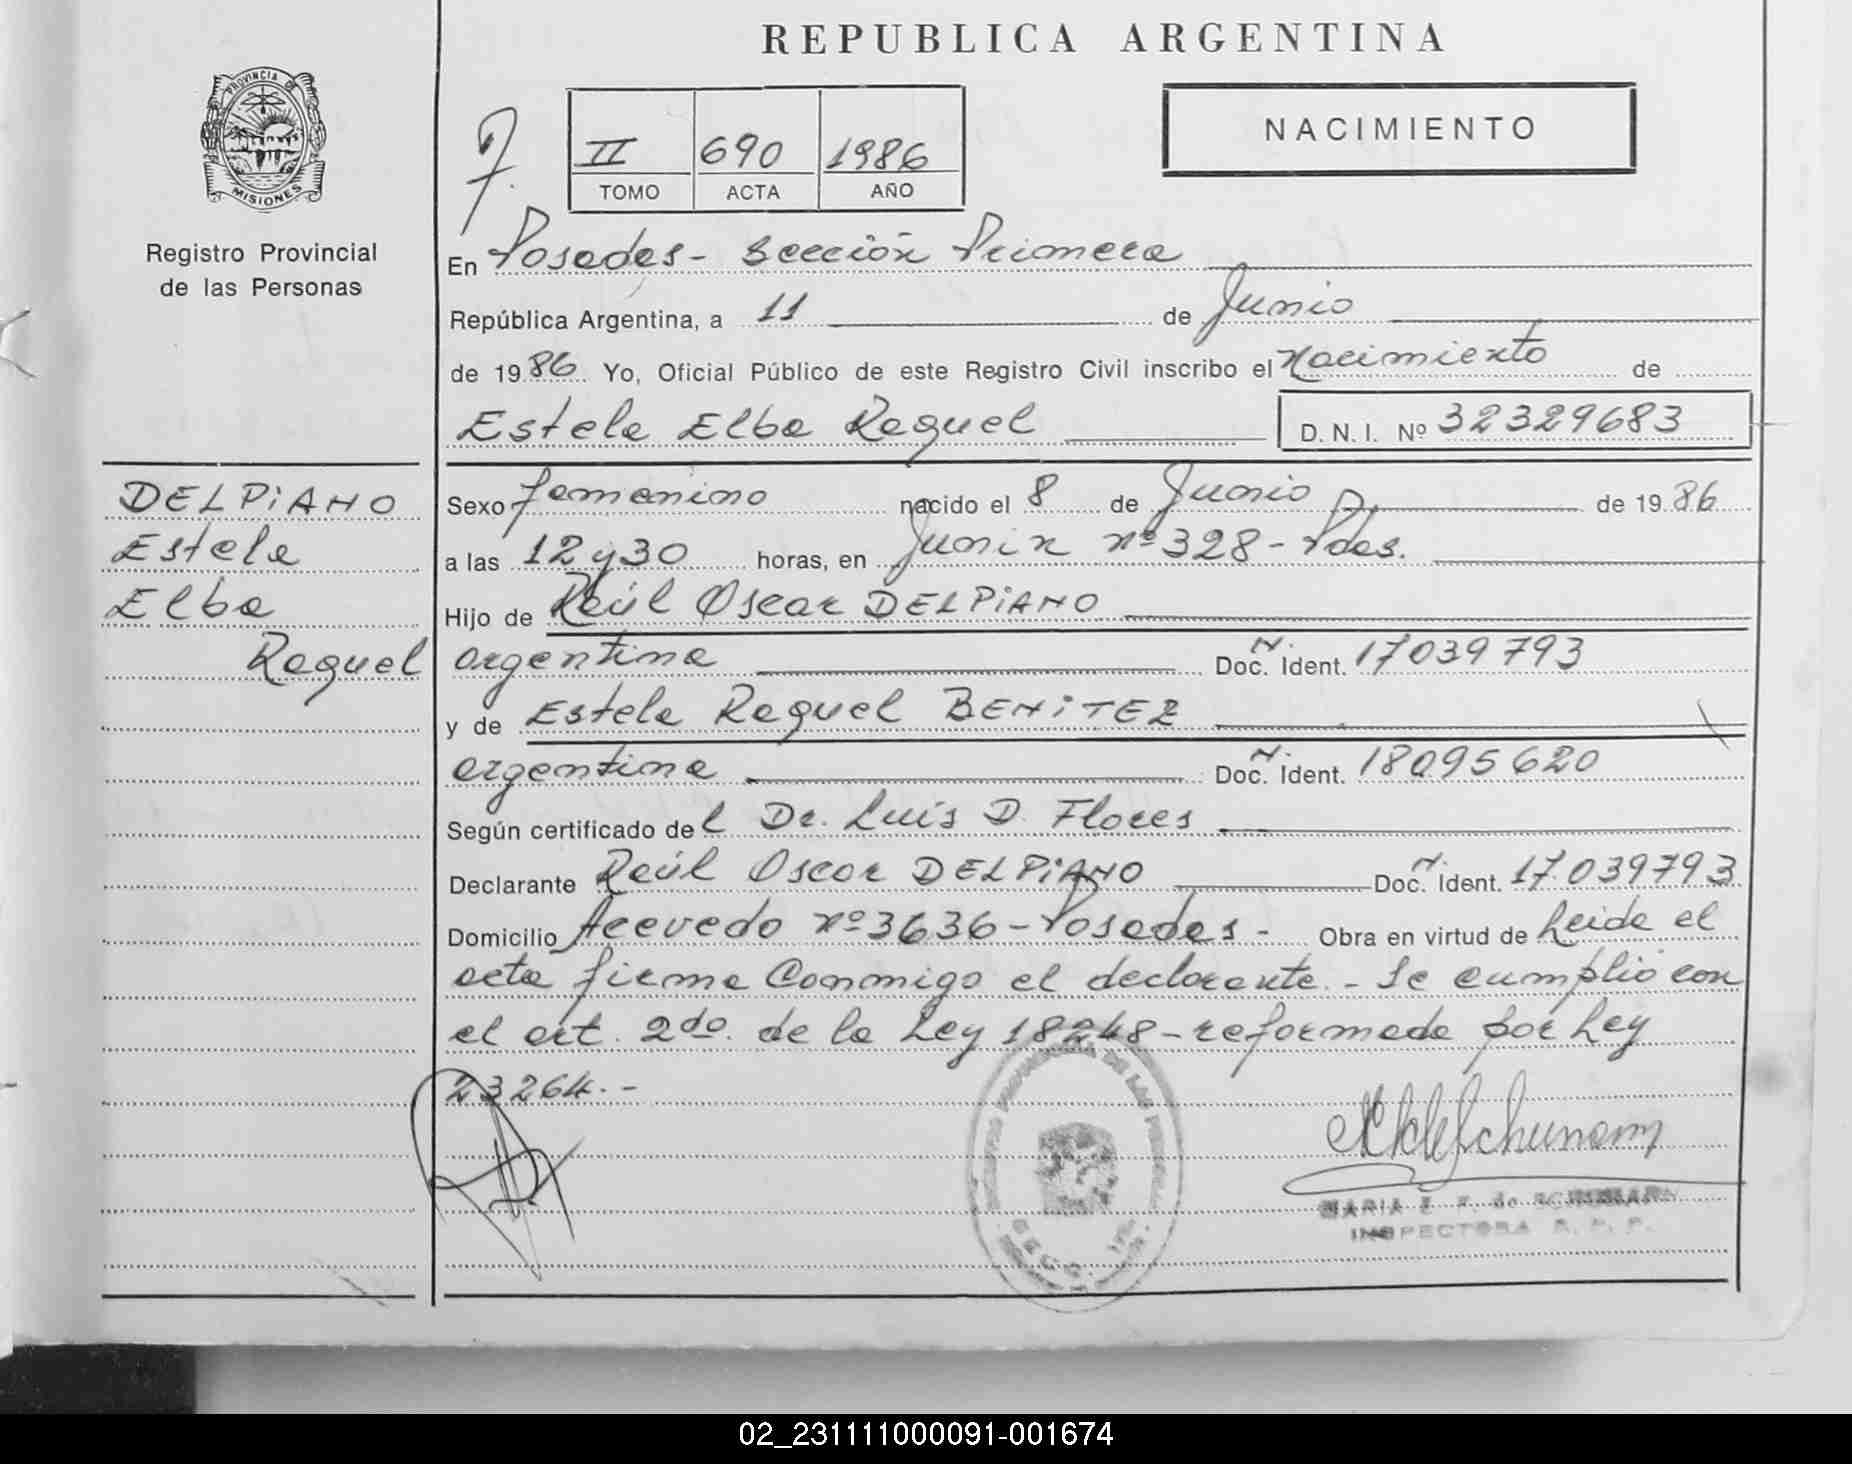 REPUBLICA ARGENTINA
PROVINCIA DE
MISIONES
Registro Provincial
de las Personas
II 690 1986
TOMO ACTA AÑO
NACIMIENTO
En Posadas - Sección Primera
República Argentina, a 11 de Junio
de 1986 Yo, Oficial Público de este Registro Civil inscribo el Nacimiento de
Estela Elba Raquel D. N. I. Nº 32329683
DELPIANO
Estela
Elba
Raquel
Sexo femenino nacido el 8 de Junio de 1986
a las 12 y 30 horas, en Junin nº 328 - Pdas.
Hijo de Raúl Oscar DELPIANO
argentina Doc. N. Ident. 17039793
y de Estela Raquel BENITEZ
argentina Doc. N. Ident. 18095620
Según certificado del Dr. Luis D. Flores
Declarante Raúl Oscar DELPIANO Doc. N. Ident. 17.039793
Domicilio Acevedo nº 3636 - Posadas - Obra en virtud de Leida el
acta firma Conmigo el declarante. - Se cumplió con
el art. 2do. de la Ley 18248 - reformada por Ley
23264. -
MARIA E. F. de SCHUMANN
INSPECTORA R. P. P.
02_231111000091-001674